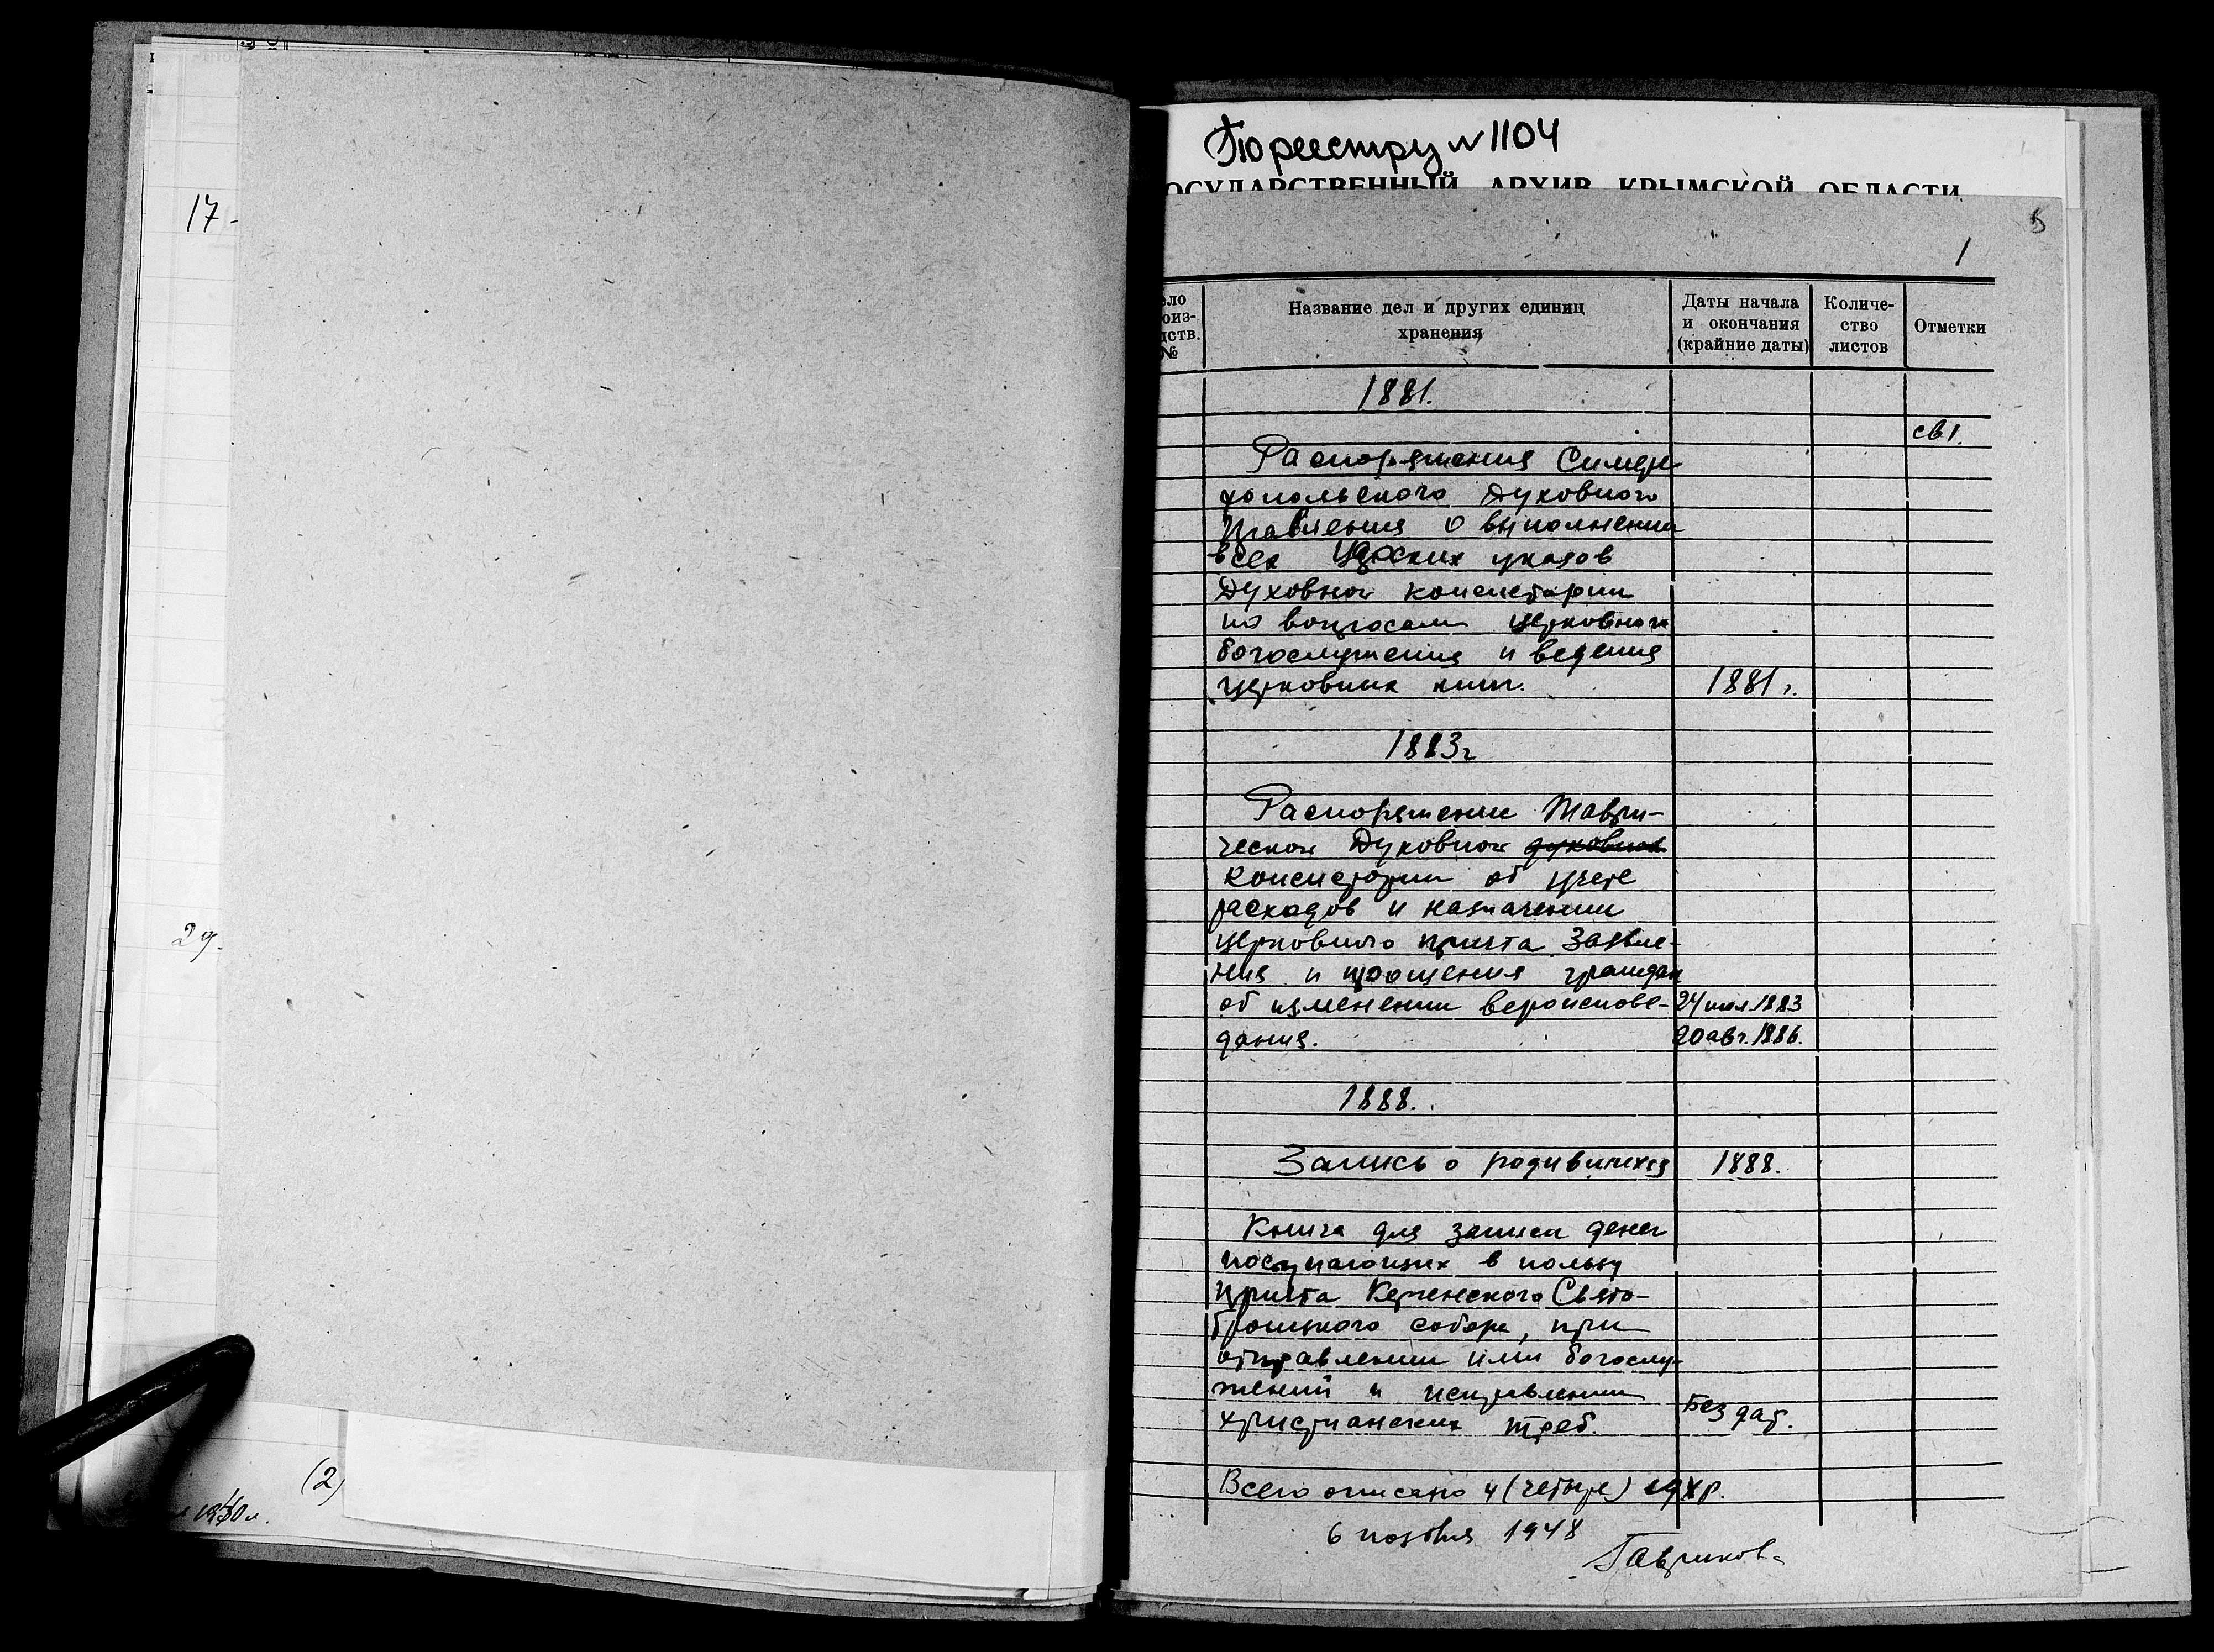 17-
29-
(2)
По реестру № 1104
ОСУДАРСТВЕННЫЙ АРХИВ КРЫМСКОЙ ОБЛАСТИ
5
1
ело
оиз-
дств.
№
Название дел и других единиц
хранения
Даты начала
и окончания
(крайние даты)
Количе-
ство
листов
Отметки
1881.
св 1.
Распоряжения Симфе-
ропольского Духовного
Правления о выполнении
всех Царских указов
Духовной консистории
по вопросам церковного
богослужения и ведения
церковных книг. 1881 г.
1883 г
Распоряжение Таври-
ческой Духовной духовной
консистории об учете
расходов и назначении
церковного причта Заявле-
ния и прошения граждан
об изменении вероиспове- 24 июл. 1883
дания. 20 авг. 1886.
1888.
Запись о родившихся 1888.
Книга для записи денег
поступающих в пользу
причта Керченского Свято-
Троицкого собора, при
отправлении ими богослу-
жений и исправлении
христианских треб. Без дат.
Всего описано 4 (четыре) ед хр.
6 ноября 1948
Гаврикова